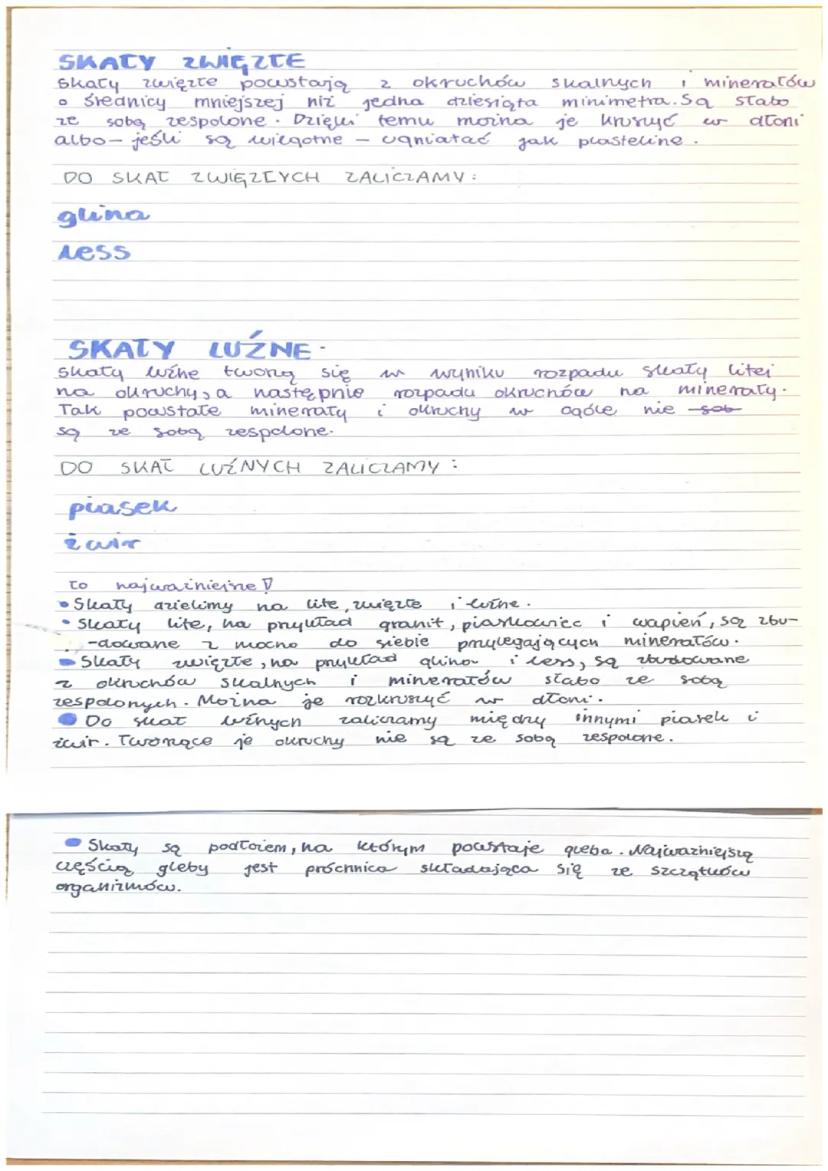 SKAŁY ZWIĘZŁE
Skały zwięzłe powstają z okruchów skalnych i minerałów
o średnicy mniejszej niż jedna dziesiąta minimetra. Są słabo
ze sobą zespolone. Dzięki temu można je kruszyć w dłoni
albo - jeśli są wilgotne - ugniatać jak plastelinę.
DO SKAŁ ZWIĘZŁYCH ZALICZAMY:
glina
less
SKAŁY LUŹNE
Skały luźne tworzą się w wyniku rozpadu skały litej
na okruchy, a następnie rozpadu okruchów na minerały.
Tak powstałe minerały i okruchy w ogóle nie sob
są ze sobą zespolone.
DO SKAŁ LUŹNYCH ZALICZAMY:
piasek
żwir
to najważniejsze!
• Skały dzielimy na lite, zwięzłe i luźne.
• Skały lite, na przykład granit, piaskowiec i wapień, są zbu-
-dowane z mocno do siebie przylegających minerałów.
• Skały zwięzłe, na przykład glina i less, są zbudowane
z okruchów skalnych i minerałów słabo ze sobą
zespolonych. Można je rozkruszyć w dłoni.
• Do skał luźnych zaliczamy między innymi piasek i
żwir. Tworzące je okruchy nie są ze sobą zespolone.
• Skały są podłożem, na którym powstaje gleba. Najważniejszą
częścią gleby jest próchnica składająca się ze szczątków
organizmów.